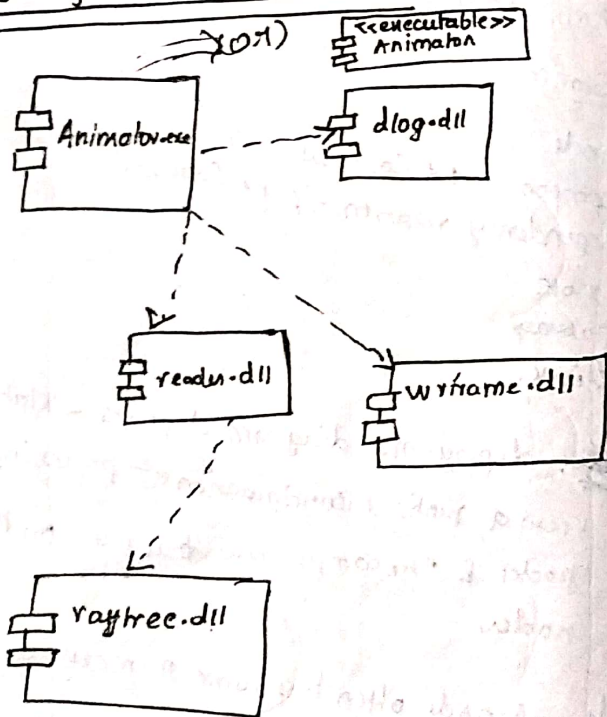 (or)
<<executable>>
Animator
Animator.exe
dlog.dll
render.dll
wrframe.dll
raytree.dll